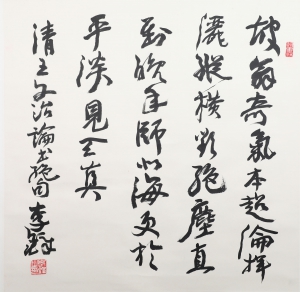 坡翁奇氣本超倫揮
灑縱橫欲絕塵直
到晚年師北海更於
平淡見天真
清王文治論書絕句 李鐸